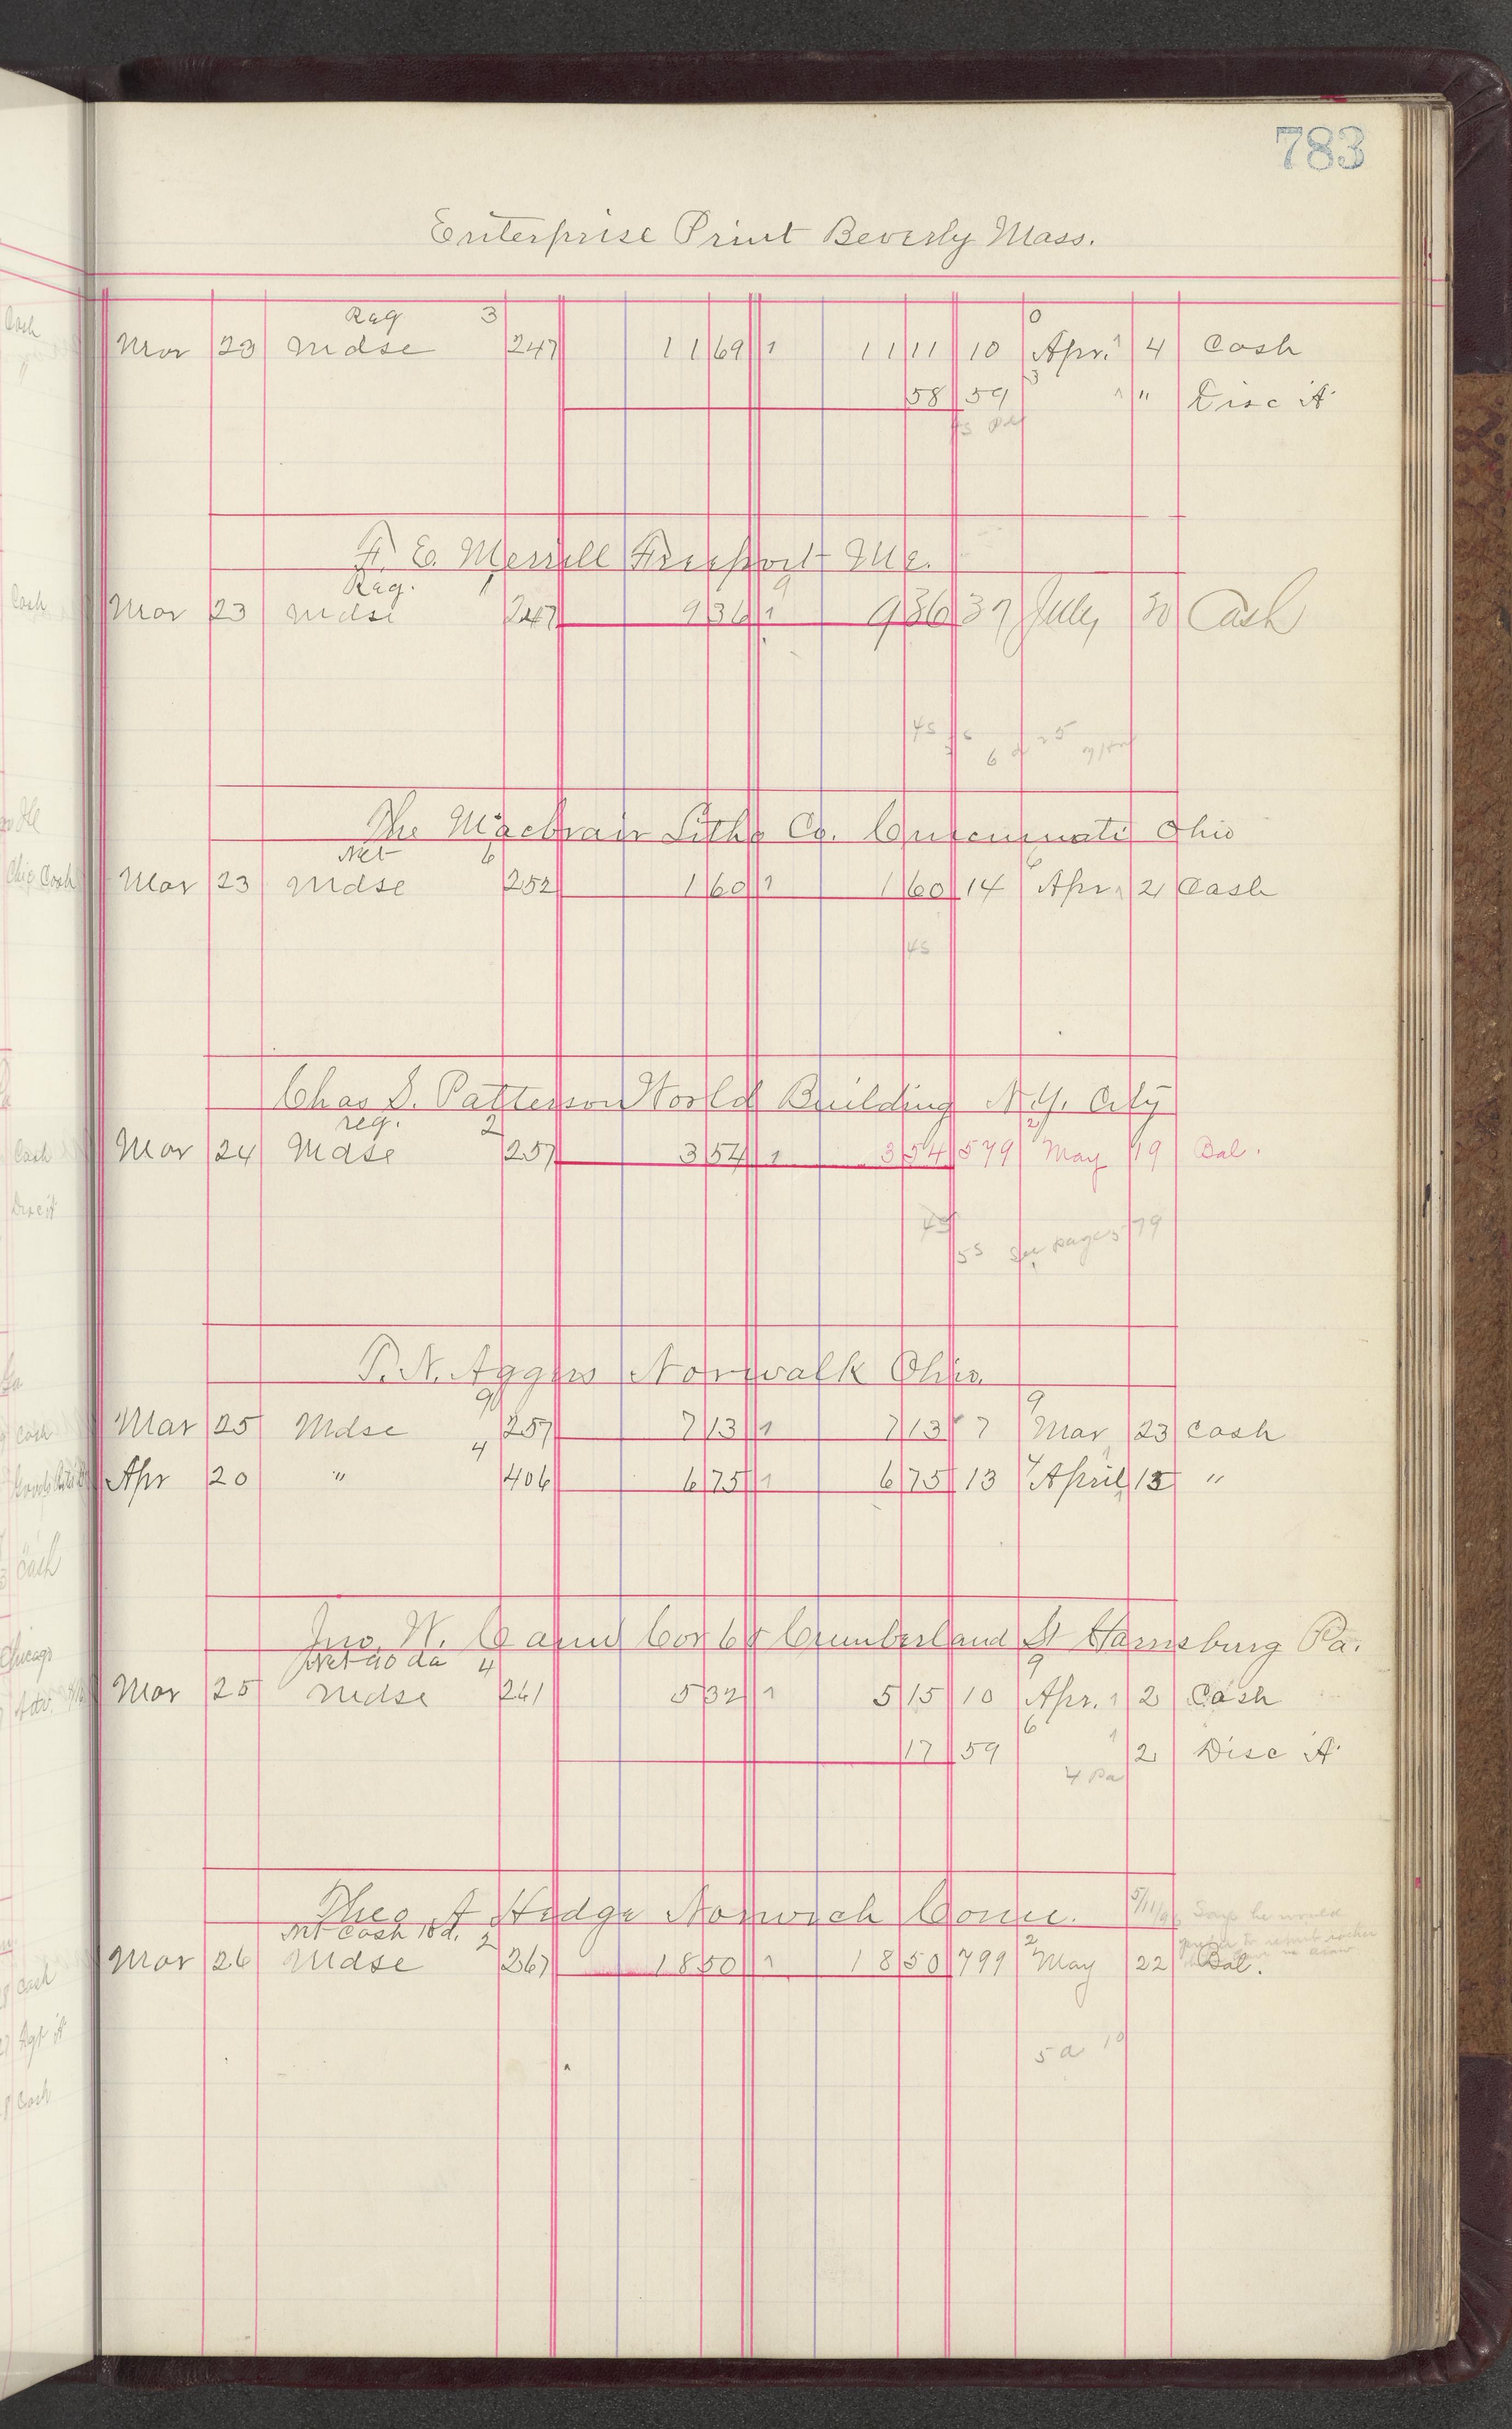 783
Enterprise Print Beverly Mass.
Reg 3 0
Mar 23 Mdse 247 11 69 1 11 11 10 Apr. 1 4 Cash
58 59 3 " Disc A
F. E. Merrill Freeport Me.
Reg. 1 9
Mar 23 Mdse 247 9 36 1 9 36 37 July 30 Cash
45
The Macbrair Litho Co. Cincinnati Ohio
Net 6 6
Mar 23 Mdse 252 1 60 1 1 60 14 Apr. 21 Cash
45
Chas S. Patterson World Building N.Y. City
reg. 2 2
Mar 24 Mdse 257 3 54 1 3 54 579 May 19 Bal.
45
5s See page 579
P. N. Aggers Norwalk Ohio
9 9
Mar 25 Mdse 257 7 13 1 7 13 7 Mar 23 Cash
4
Apr 20 " 406 6 75 1 6 75 13 April 13 "
Jno. W. Cannd Cor 6 & Cumberland St Harrisburg Pa.
Net 4 9
Mar 25 Mdse 261 5 32 1 5 15 10 Apr. 1 2 Cash
17 59 6 1 2 Disc A
4 Pa
Theo A Hedge Norwich Conn.
Says he would
Net Cash 10 d. 2 2
Mar 26 Mdse 267 18 50 1 18 50 799 May 22 Bal.
5 a 10